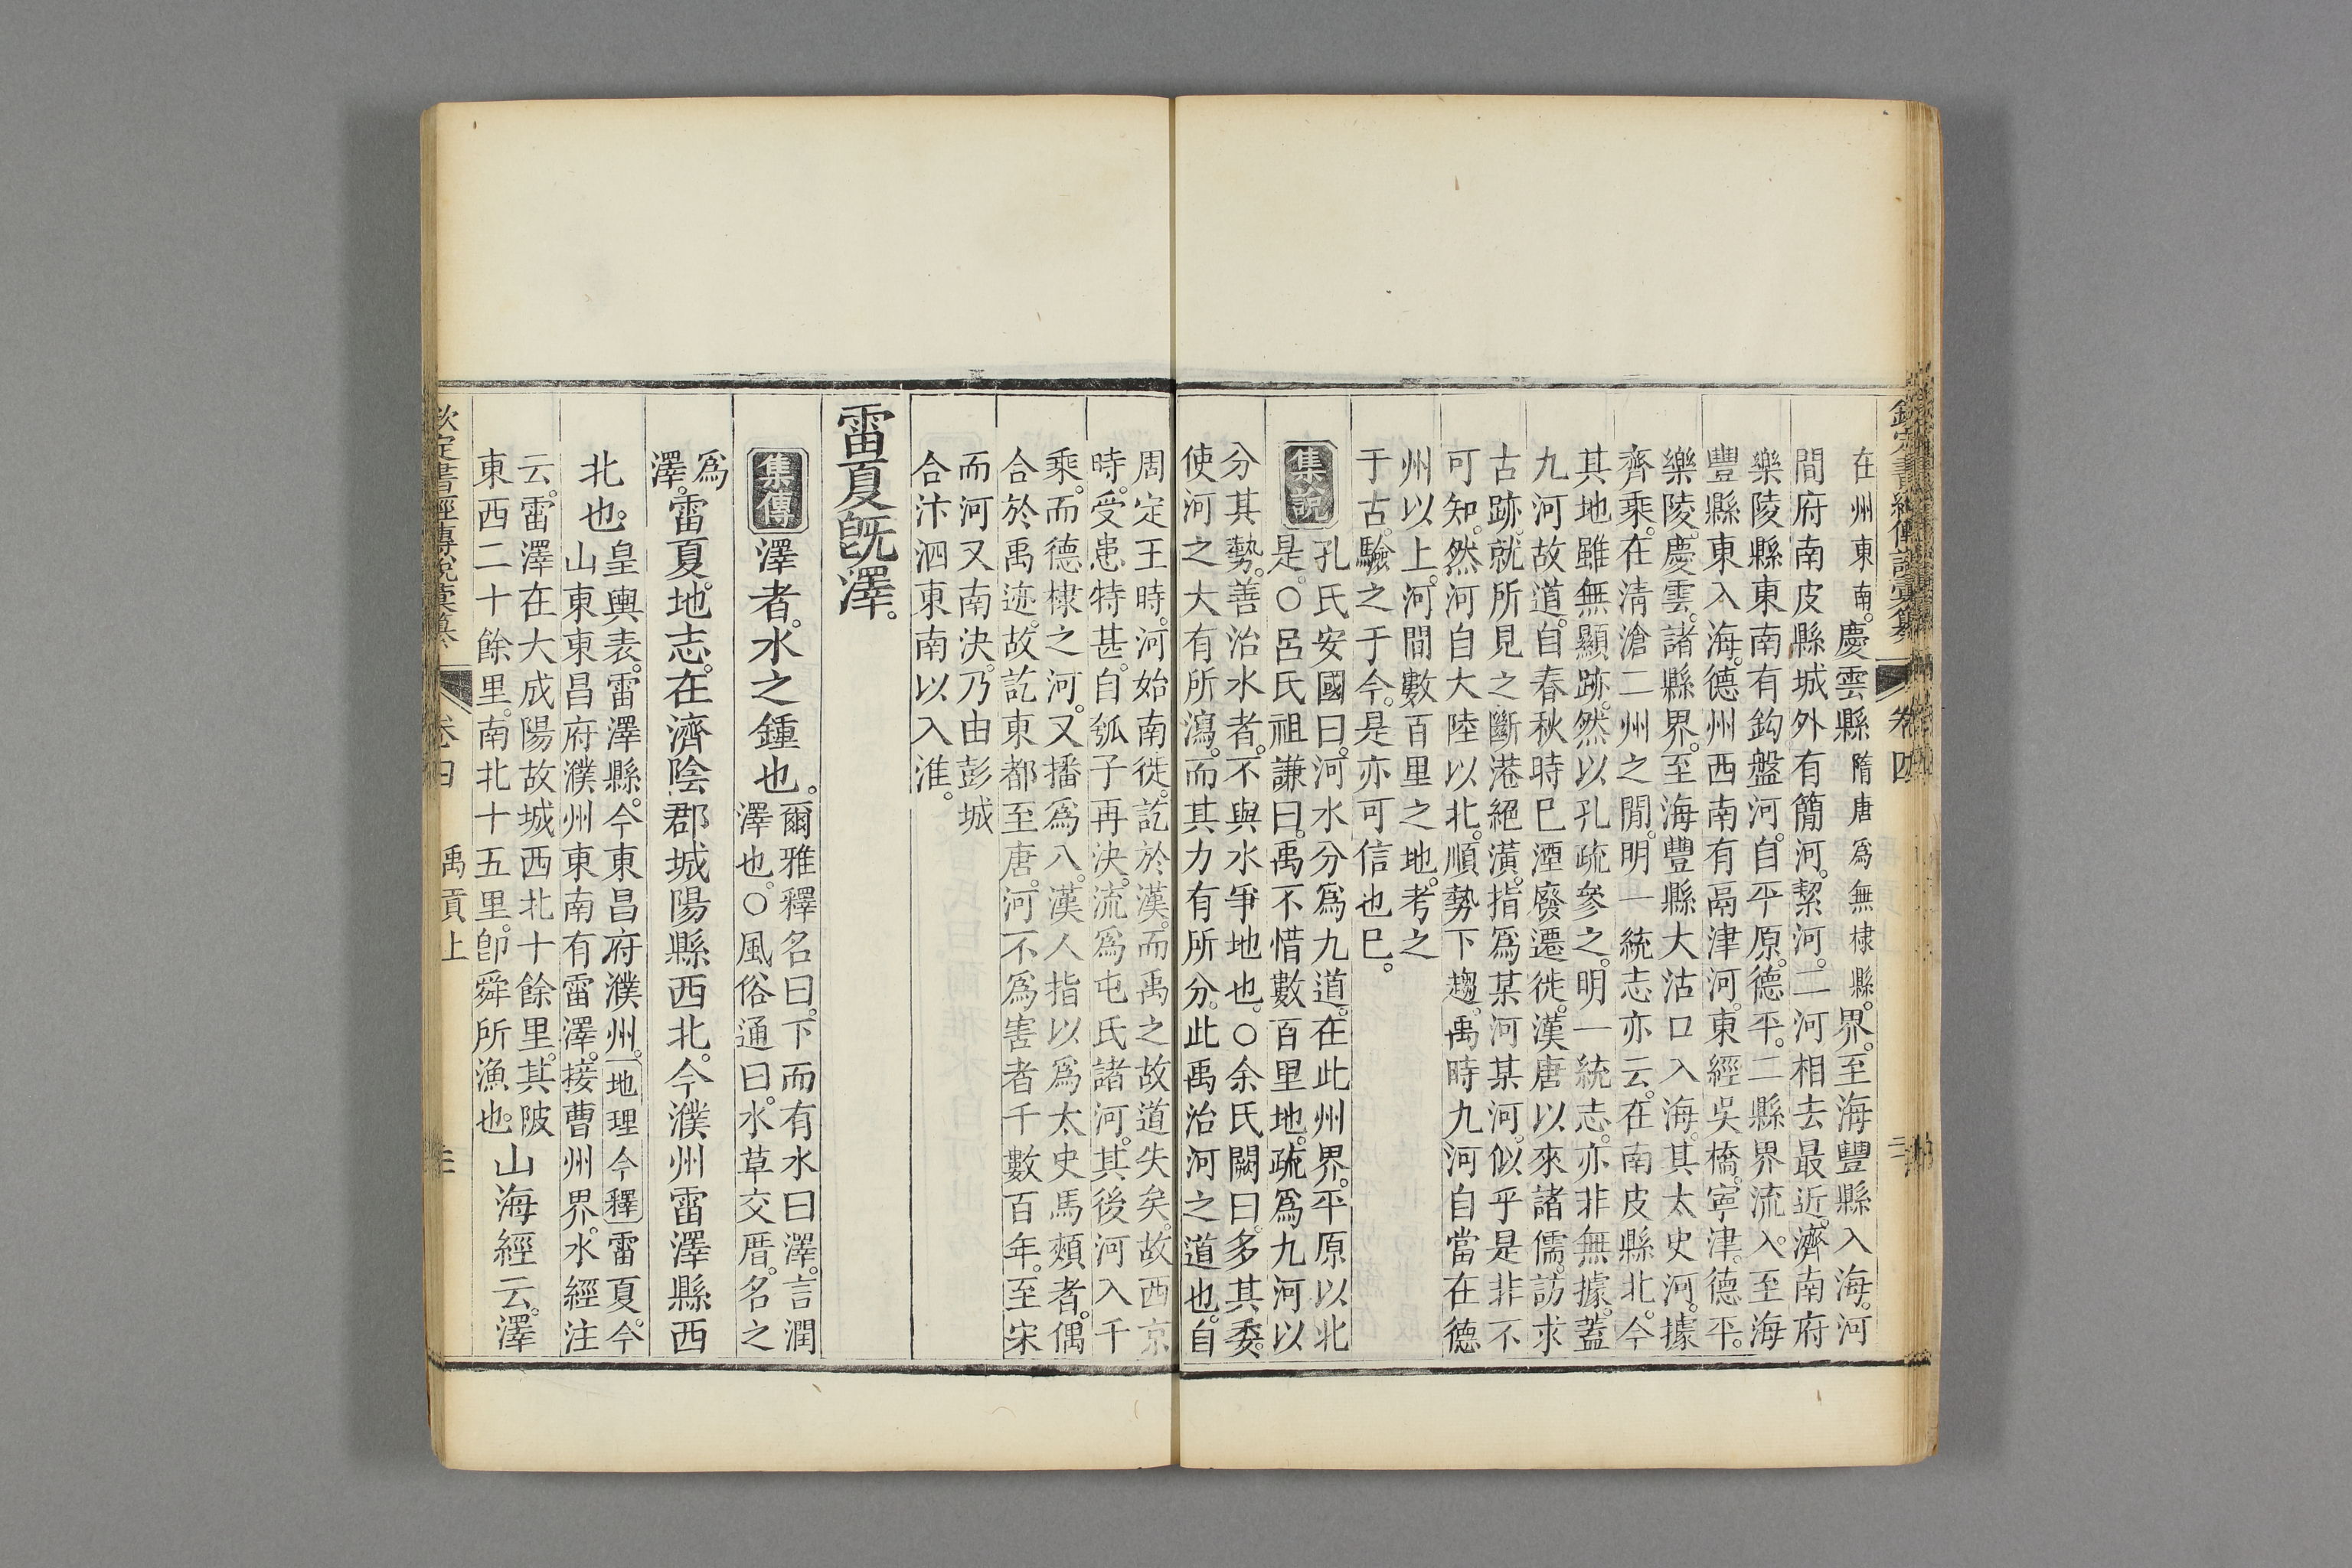 欽定書經傳說彙纂 卷四
在州東南。慶雲縣隋唐爲無棣縣。界。至海豐縣入海。河
間府南皮縣城外有簡河。絜河。二河相去最近。濟南府
樂陵縣東南有鈎盤河。自平原。德平。二縣界流入。至海
豐縣東入海。德州西南有鬲津河。東經吳橋。寧津。德平。
樂陵。慶雲。諸縣界。至海豐縣大沽口入海。其太史河。據
齊乘。在淸滄二州之閒。明一統志亦云。在南皮縣北。今
其地雖無顯跡。然以孔疏參之。明一統志。亦非無據。蓋
九河故道。自春秋時已湮廢遷徙。漢唐以來諸儒。訪求
古跡。就所見之斷港絕潢。指爲某河某河。似乎是非不
可知。然河自大陸以北。順勢下趨。禹時九河自當在德
州以上。河間數百里之地。考之
于古。驗之于今。是亦可信也已。
集說 孔氏安國曰。河水分爲九道。在此州界。平原以北
是。○呂氏祖謙曰。禹不惜數百里地。疏爲九河以
分其勢。善治水者。不與水爭地也。○余氏闕曰。多其委。
使河之大有所瀉。而其力有所分。此禹治河之道也。自
周定王時。河始南徙。訖於漢。而禹之故道失矣。故西京
時。受患特甚。自瓠子再決。流爲屯氏諸河。其後河入千
乘。而德棣之河。又播爲八。漢人指以爲太史馬頰者。偶
合於禹迹。故訖東都至唐。河不爲害者千數百年。至宋
而河又南決。乃由彭城
合汴泗東南以入淮。
雷夏既澤。
集傳 澤者。水之鍾也。爾雅釋名曰。下而有水曰澤。言潤
澤也。○風俗通曰。水草交厝。名之
爲
澤。雷夏。地志。在濟陰郡城陽縣西北。今濮州雷澤縣西
北也。皇輿表。雷澤縣。今東昌府濮州。地理今釋 雷夏。今
山東東昌府濮州東南有雷澤。接曹州界。水經注
云。雷澤在大成陽故城西北十餘里。其陂
東西二十餘里。南北十五里。卽舜所漁也。山海經云。澤
欽定書經傳說彙纂 卷四 禹貢上